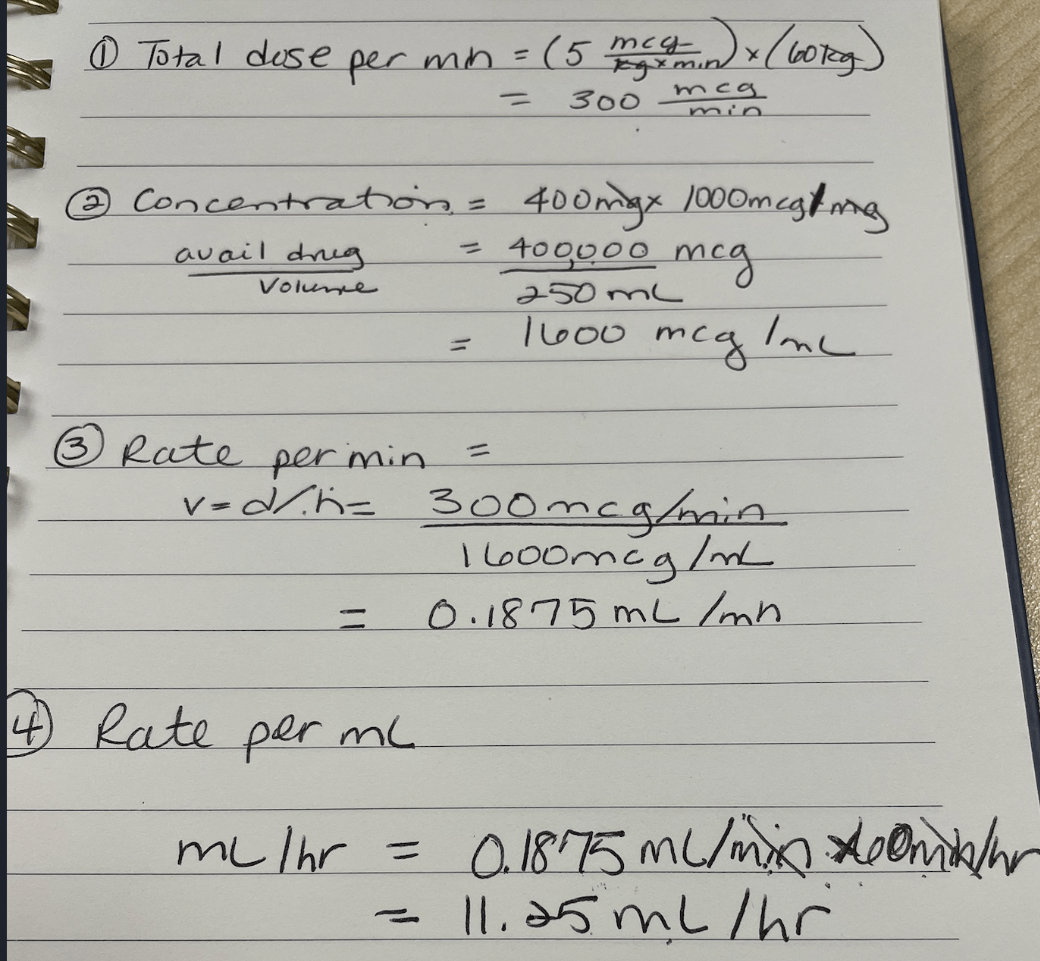 ① Total dose per mn = (5 mcg/kg×min) × (60kg)
= 300 mcg/min
② Concentration = 400mg x 1000mcg/mg
avail drug/Volume = 400,000 mcg/250 mL
= 1600 mcg/mL
③ Rate per min =
v=d/h= 300mcg/min/1600mcg/mL
= 0.1875 mL/mn
④ Rate per mL
mL/hr = 0.1875 mL/min x60min/hr
= 11.25 mL/hr